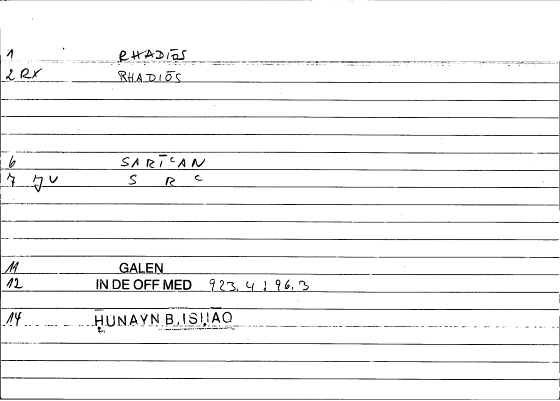 1 RHADIŌS
2 RX RHADIŌS
6 SARĪCAN
7 JV S R C
11 GALEN
12 IN DE OFF MED 923.4 : 96.3
14 ḤUNAYN B. ISḤĀQ